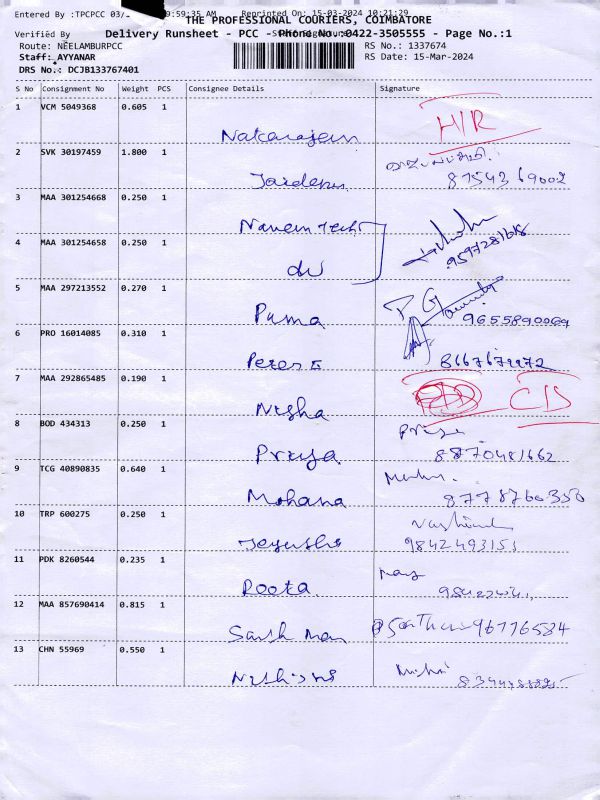 Entered By :TPCPCC 03/ 9:59:35 AM Reprinted On: 15-03-2024 10:21:29
THE PROFESSIONAL COURIERS, COIMBATORE
Verified By
Delivery Runsheet - PCC - Phone No :0422-3505555 - Page No.:1
Route: NEELAMBURPCC RS No.: 1337674
Staff: AYYANAR RS Date: 15-Mar-2024
DRS No.: DCJB133767401
S No Consignment No Weight PCS Consignee Details Signature
1 VCM 5049368 0.605 1 Natarajan H/R
2 SVK 30197459 1.800 1 8754369002
3 MAA 301254668 0.250 1 Naveen Tech
4 MAA 301254658 0.250 1 do 9597281618
5 MAA 297213552 0.270 1 Puma 9655890069
6 PRO 16014085 0.310 1 Peter E 8667679972
7 MAA 292865485 0.190 1 Nisha CIS
8 BOD 434313 0.250 1 Priya Priya 8870481662
9 TCG 40890835 0.640 1 Mohana 8778760350
10 TRP 600275 0.250 1 9842493151
11 PDK 8260544 0.235 1
12 MAA 857690414 0.815 1 96776584
13 CHN 55969 0.550 1